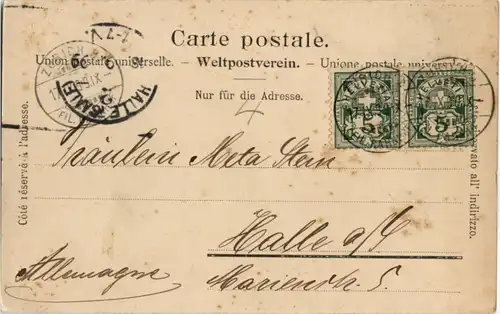 Carte postale.
Union postale universelle. – Weltpostverein. – Unione postale universale.
Nur für die Adresse.
Côté réservé à l'adresse.
HALLE (SAALE)
HELVETIA HELVETIA
5 5
4
Fräulein Meta Stein
Halle a/S
Marienstr. 5.
Allemagne
all' indirizzo.